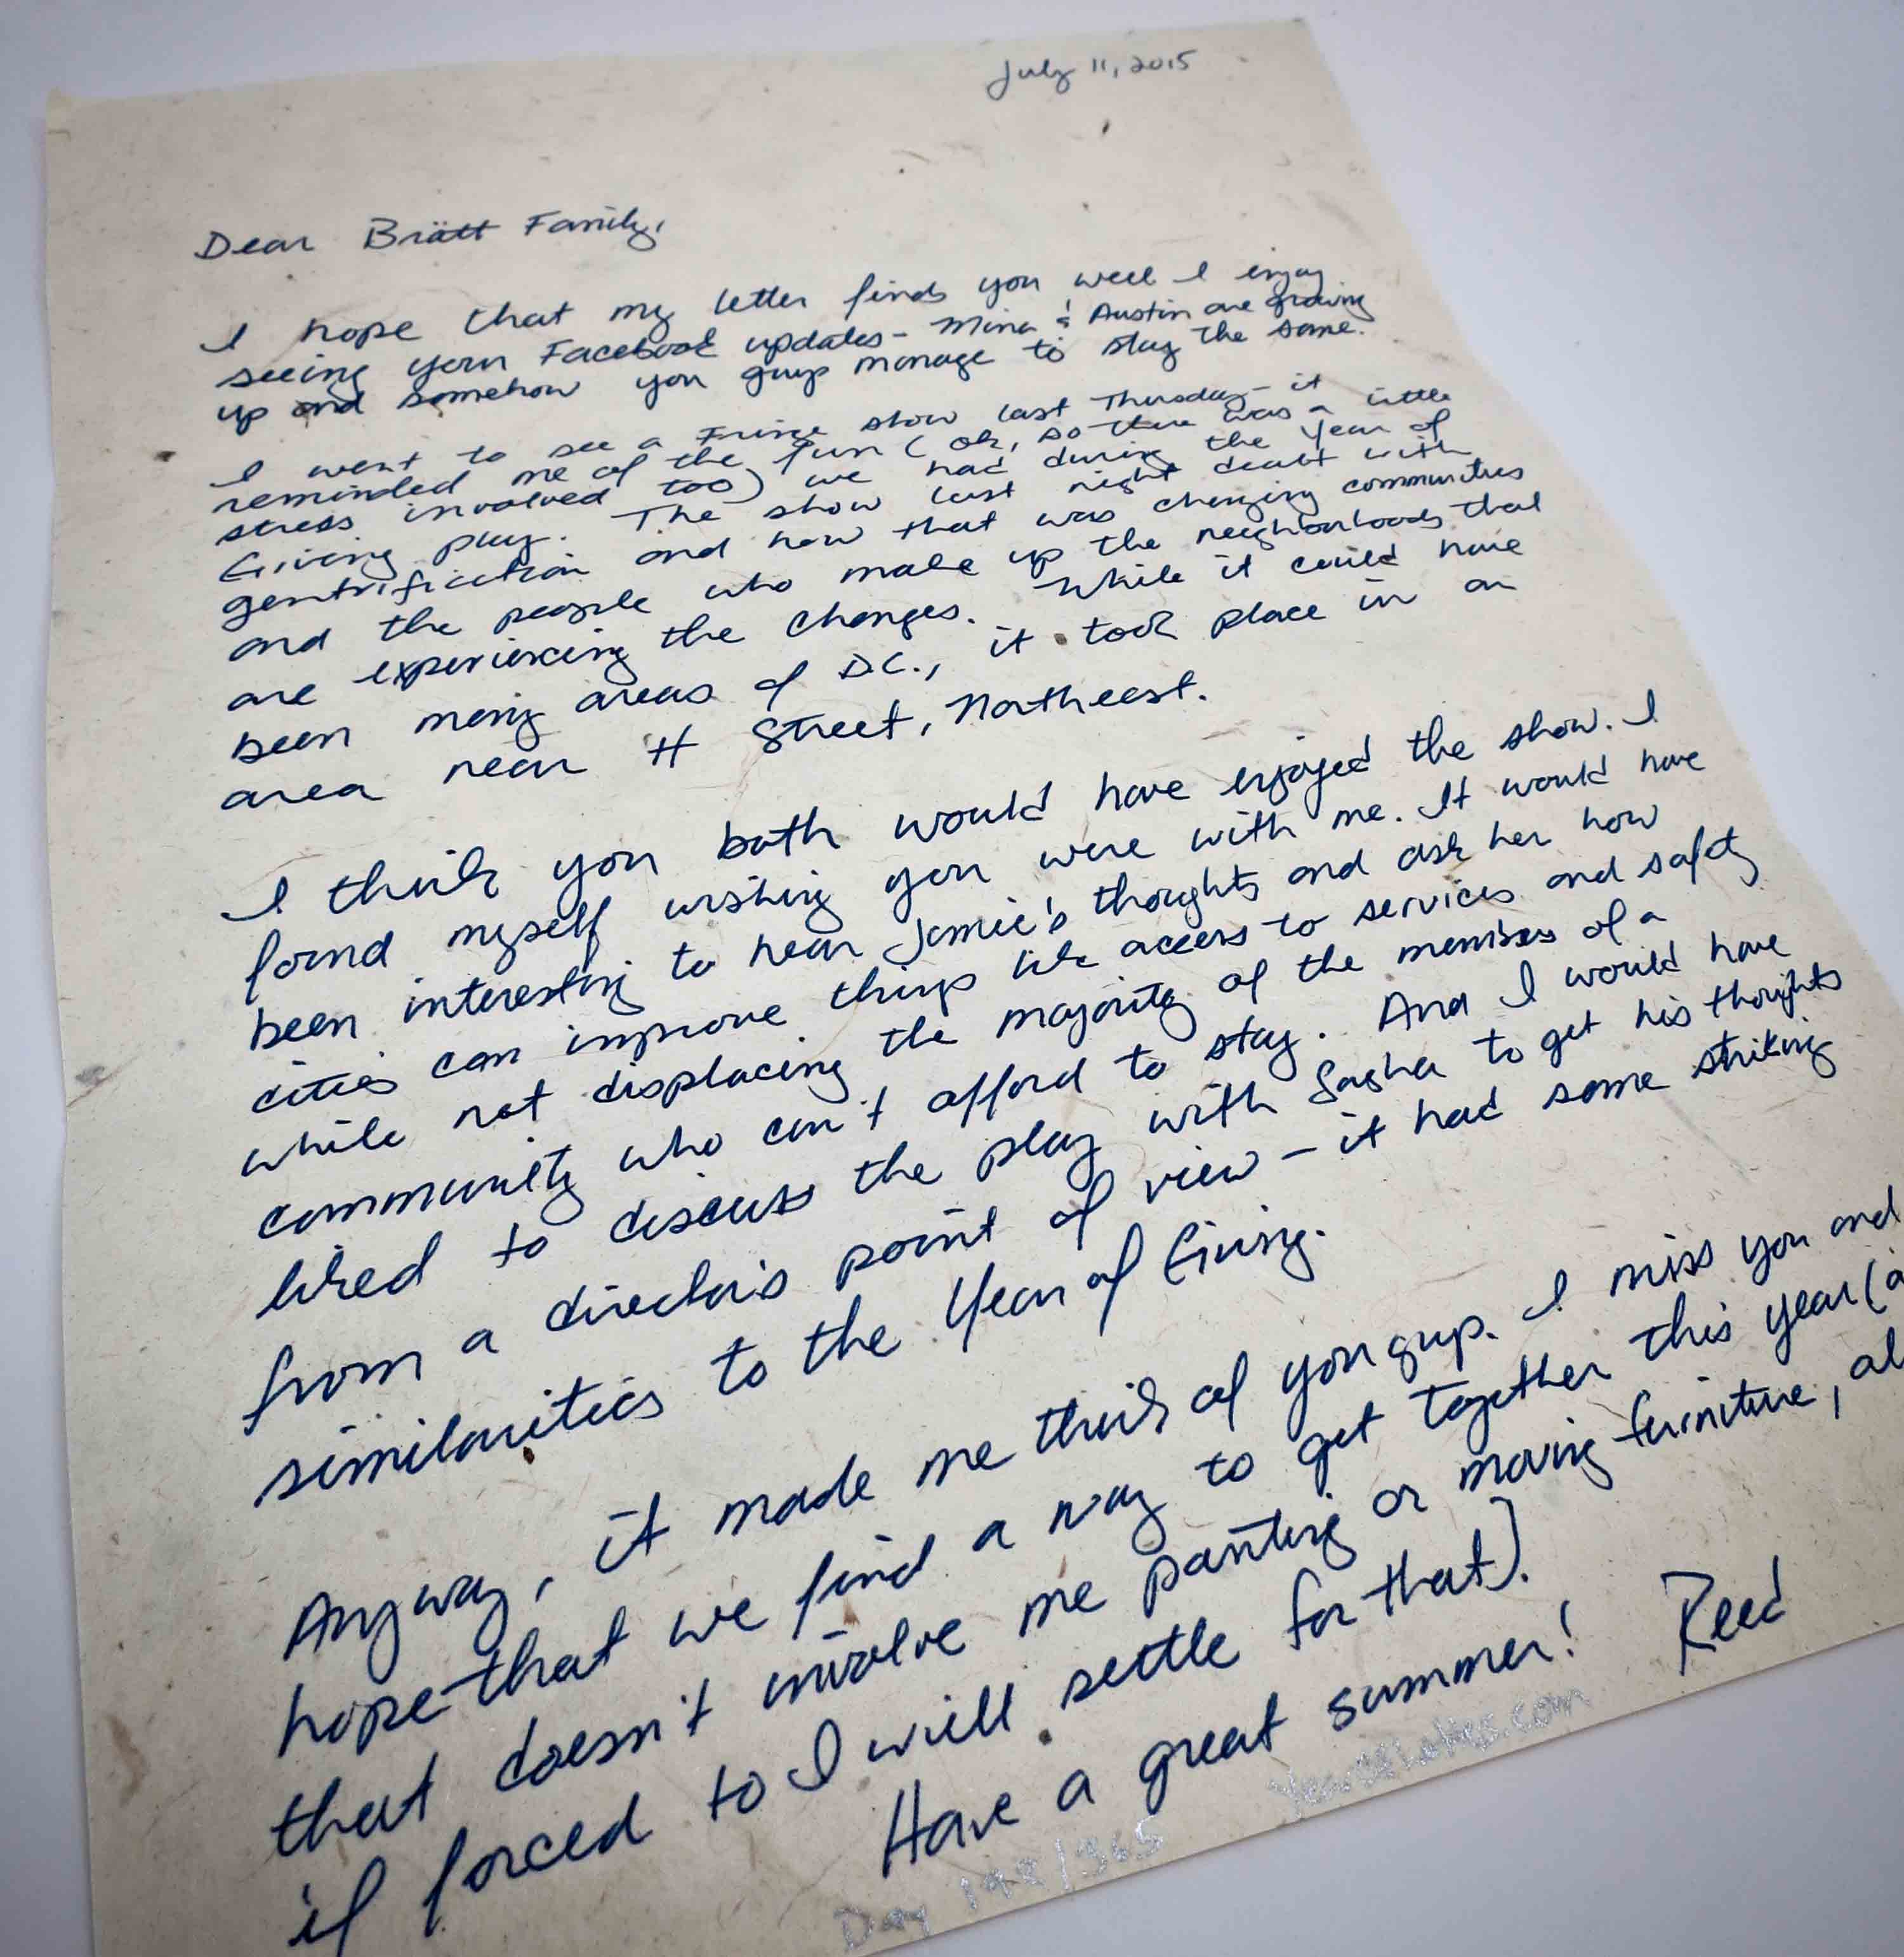 July 11, 2015
Dear Brätt Family,
I hope that my letter finds you well I enjoy
seeing your Facebook updates - Mina & Austin are growing
up and somehow you guys manage to stay the same.
I went to see a Fringe show last Thursday - it
reminded me of the fun (ok, so there was a little
stress involved too) we had during the Year of
Giving play. The show last night dealt with
gentrification and how that was changing communities
and the people who make up the neighborhoods that
are experiencing the changes. While it could have
been many areas of D.C., it took place in an
area near H Street, Northeast.
I think you both would have enjoyed the show. I
found myself wishing you were with me. It would have
been interesting to hear Jamie's thoughts and ask her how
cities can improve things like access to services and safety
while not displacing the majority of the members of a
community who can't afford to stay. And I would have
liked to discuss the play with Sasha to get his thoughts
from a director's point of view - it had some striking
similarities to the Year of Giving.
Anyway, it made me think of you guys. I miss you and
hope that we find a way to get together this year (a
that doesn't involve me painting or moving furniture, al
if forced to I will settle for that).
Have a great summer! Reed
Day 192/365 YearofLetters.com